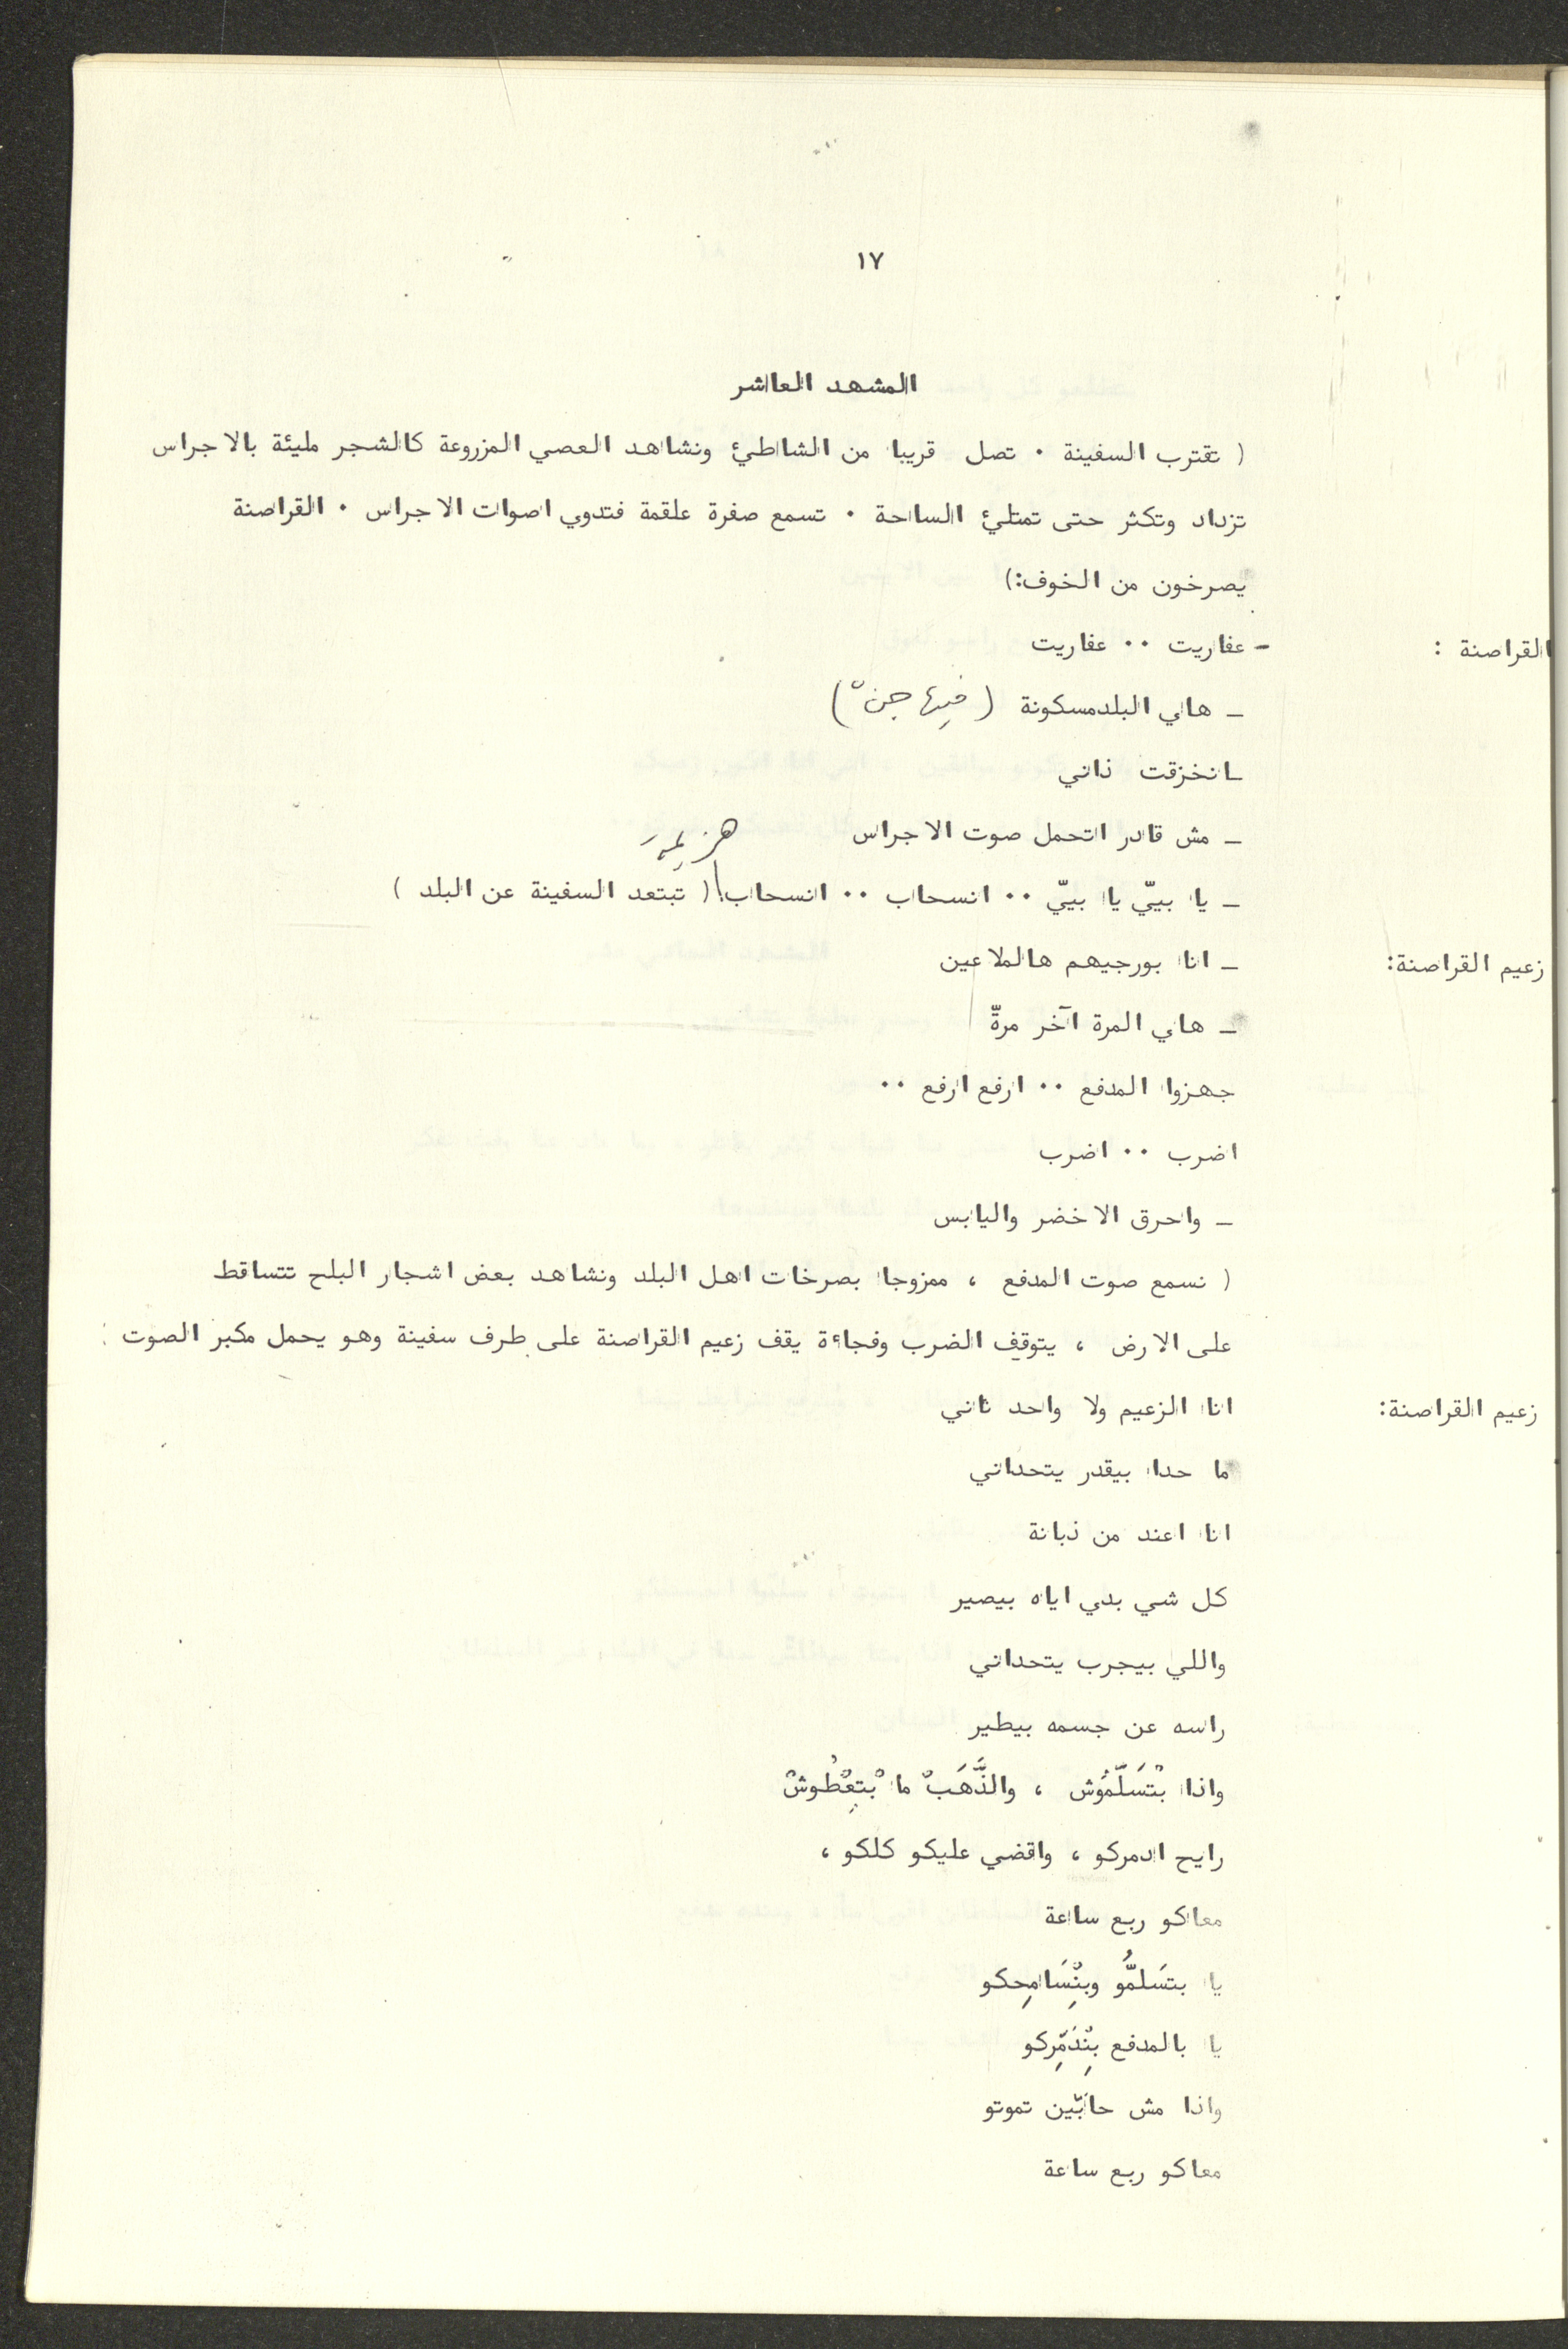 ١٧
المشهد العاشر
( تقترب السفينة ٠ تصل قريبا من الشاطئ ونشاهد العصي المزروعة كالشجر مليئة بالاجراس
تزداد وتكثر حتى تمتلئ الساحة ٠ تسمع صفرة علقمة فتدوي اصوات الاجراس ٠ القراصنة
يصرخون من الخوف:)
القراصنة : - عفاريت ٠٠ عفاريت
ـ هاي البلدمسكونة ( فيها جنّ )
ـانخزقت ذاني
ـ مش قادر اتحمل صوت الاجراس
هزيمة
ـ يا بييّ يا بييّ ٠٠ انسحاب ٠٠ انسحاب ( تبتعد السفينة عن البلد )
زعيم القراصنة: ـ انا بورجيهم هالملاعين
ـ هاي المرة آخر مرةّ
جهزوا المدفع ٠٠ ارفع ارفع ٠٠
اضرب ٠٠ اضرب
ـ واحرق الاخضر واليابس
( نسمع صوت المدفع ، ممزوجا بصرخات اهل البلد ونشاهد بعض اشجار البلح تتساقط
على الارض ، يتوقف الضرب وفجاءة يقف زعيم القراصنة على طرف سفينة وهو يحمل مكبر الصوت :
زعيم القراصنة: انا الزعيم ولا واحد ثاني
ما حدا بيقدر يتحداني
انا اعند من ذبانة
كل شي بدي اياه بيصير
واللي بيجرب يتحداني
راسه عن جسمه بيطير
واذا بْتسَلّمُوش ، والذَّهَبْ ما بْتِعْطُوشْ
رايح ادمركو ، واقضي عليكو كلكو ،
معاكو ربع ساعة
يا بتسَلمُّو وبنِْسَامِحكو
يا بالمدفع بِنْدَمِّركو
واذا مش حابّين تموتو
معاكو ربع ساعة